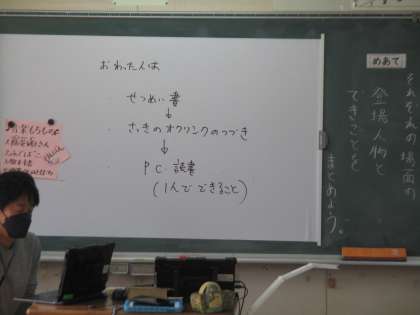 おわった人は
・せつめい書
↓
・さっきのオクリンクのつづき
↓
・PC 読書
(1人でできること)
めあて
それぞれの場面の
登場人物と
できごとを
まとめよう。